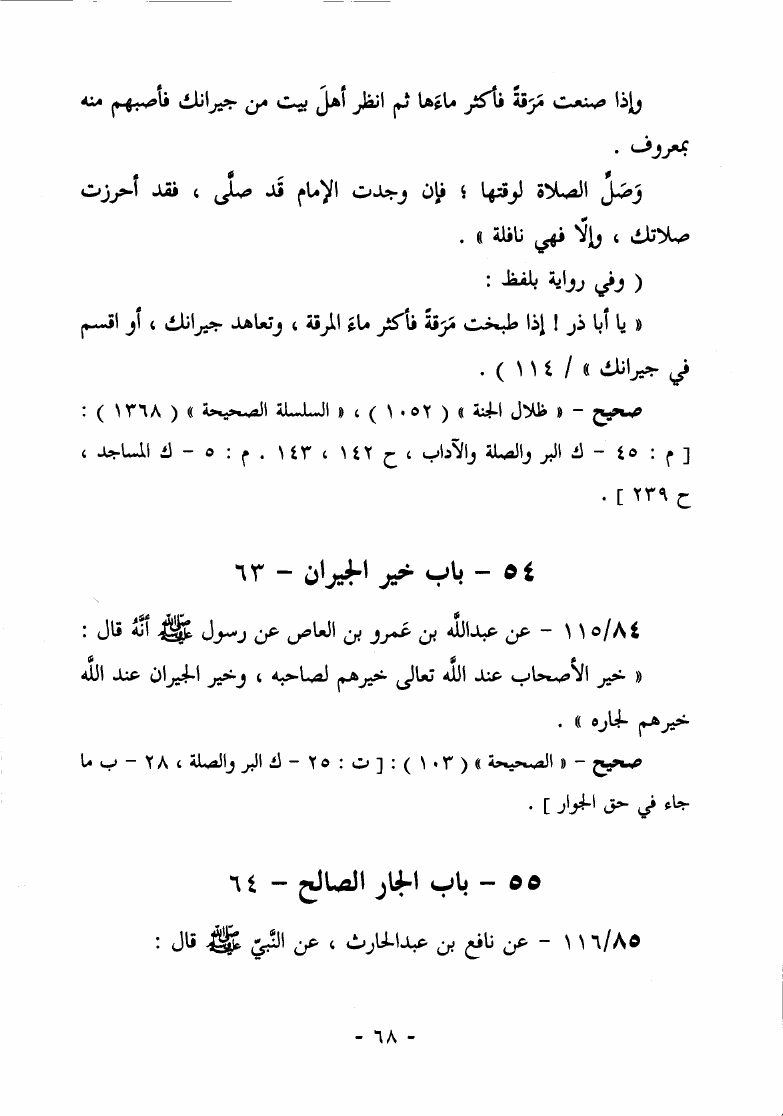 وإذا صنعت مَرَقةً فأكثر ماءَها ثم انظر أهلَ بيت من جيرانك فأصبهم منه
بمعروف .
وَصَلِّ الصلاة لوقتها ؛ فإن وجدت الإمام قَد صلَّى ، فقد أحرزت
صلاتك ، وإلَّا فهي نافلة » .
( وفي رواية بلفظ :
« يا أبا ذر ! إذا طبخت مَرَقةً فأكثر ماءَ المرقة ، وتعاهد جيرانك ، أو اقسم
في جيرانك » / ١١٤ ) .
صحيح – « ظلال الجنة » ( ١٠٥٢ ) ، « السلسلة الصحيحة » ( ١٣٦٨ ) :
[ م : ٤٥ – ك البر والصلة والآداب ، ح ١٤٢ ، ١٤٣ . م : ٥ – ك المساجد ،
ح ٢٣٩ ] .
٥٤ – باب خير الجيران – ٦٣
١١٥/٨٤ – عن عبدالله بن عَمرو بن العاص عن رسول ﷺ أنَّهُ قال :
« خير الأصحاب عند الله تعالى خيرهم لصاحبه ، وخير الجيران عند الله
خيرهم لجاره » .
صحيح – « الصحيحة » ( ١٠٣ ) : [ ت : ٢٥ – ك البر والصلة ، ٢٨ – ب ما
جاء في حق الجوار ] .
٥٥ – باب الجار الصالح – ٦٤
١١٦/٨٥ – عن نافع بن عبدالحارث ، عن النَّبيّ ﷺ قال :
- ٦٨ -